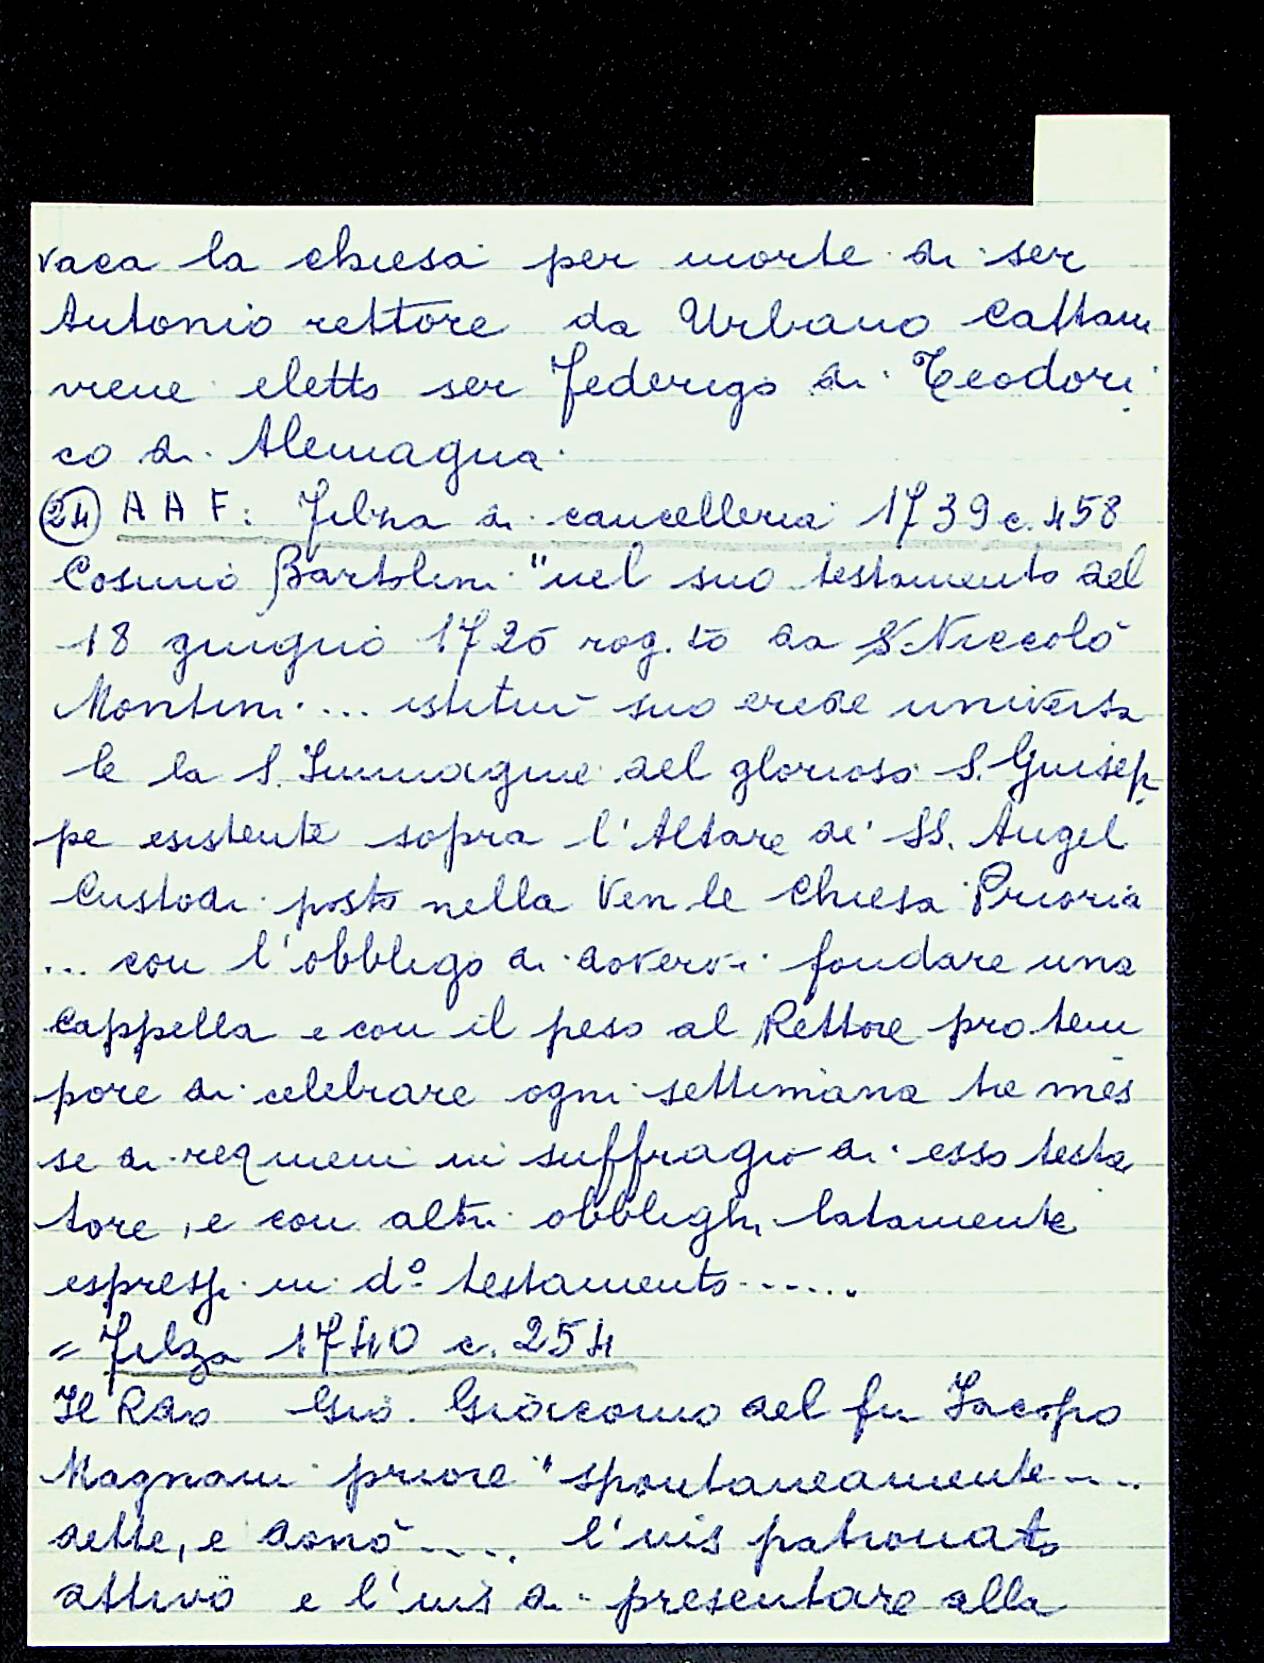 vaca la chiesa per morte di ser
Antonio rettore da Urbano Cattani
viene eletto ser Federigo di Teodori
co di Alemagna.
(24) A A F: Filza di cancelleria 1739 c. 458
Cosimo Bartolini "nel suo testamento del
18 giugno 1725 rog.to da S. Niccolò
Montini ... istituì suo erede universa
le la S. Immagine del glorioso S. Giusep
pe esistente sopra l'Altare de' SS. Angeli
Custodi posto nella Ven.le Chiesa Prioria
... con l'obbligo di dovervi fondare una
cappella e con il peso al Rettore pro tem
pore di celebrare ogni settimana tre mes
se di requiem in suffragio di esso testa
tore, e con altri obblighi latamente
espressi in do testamento .....
= Filza 1740 c. 254
Il Rdo Gio. Giacomo del fu Jacopo
Magnani priore "spontaneamente ....
dette, e donò .... l'ius patronato
attivo e l'ius di presentare alla